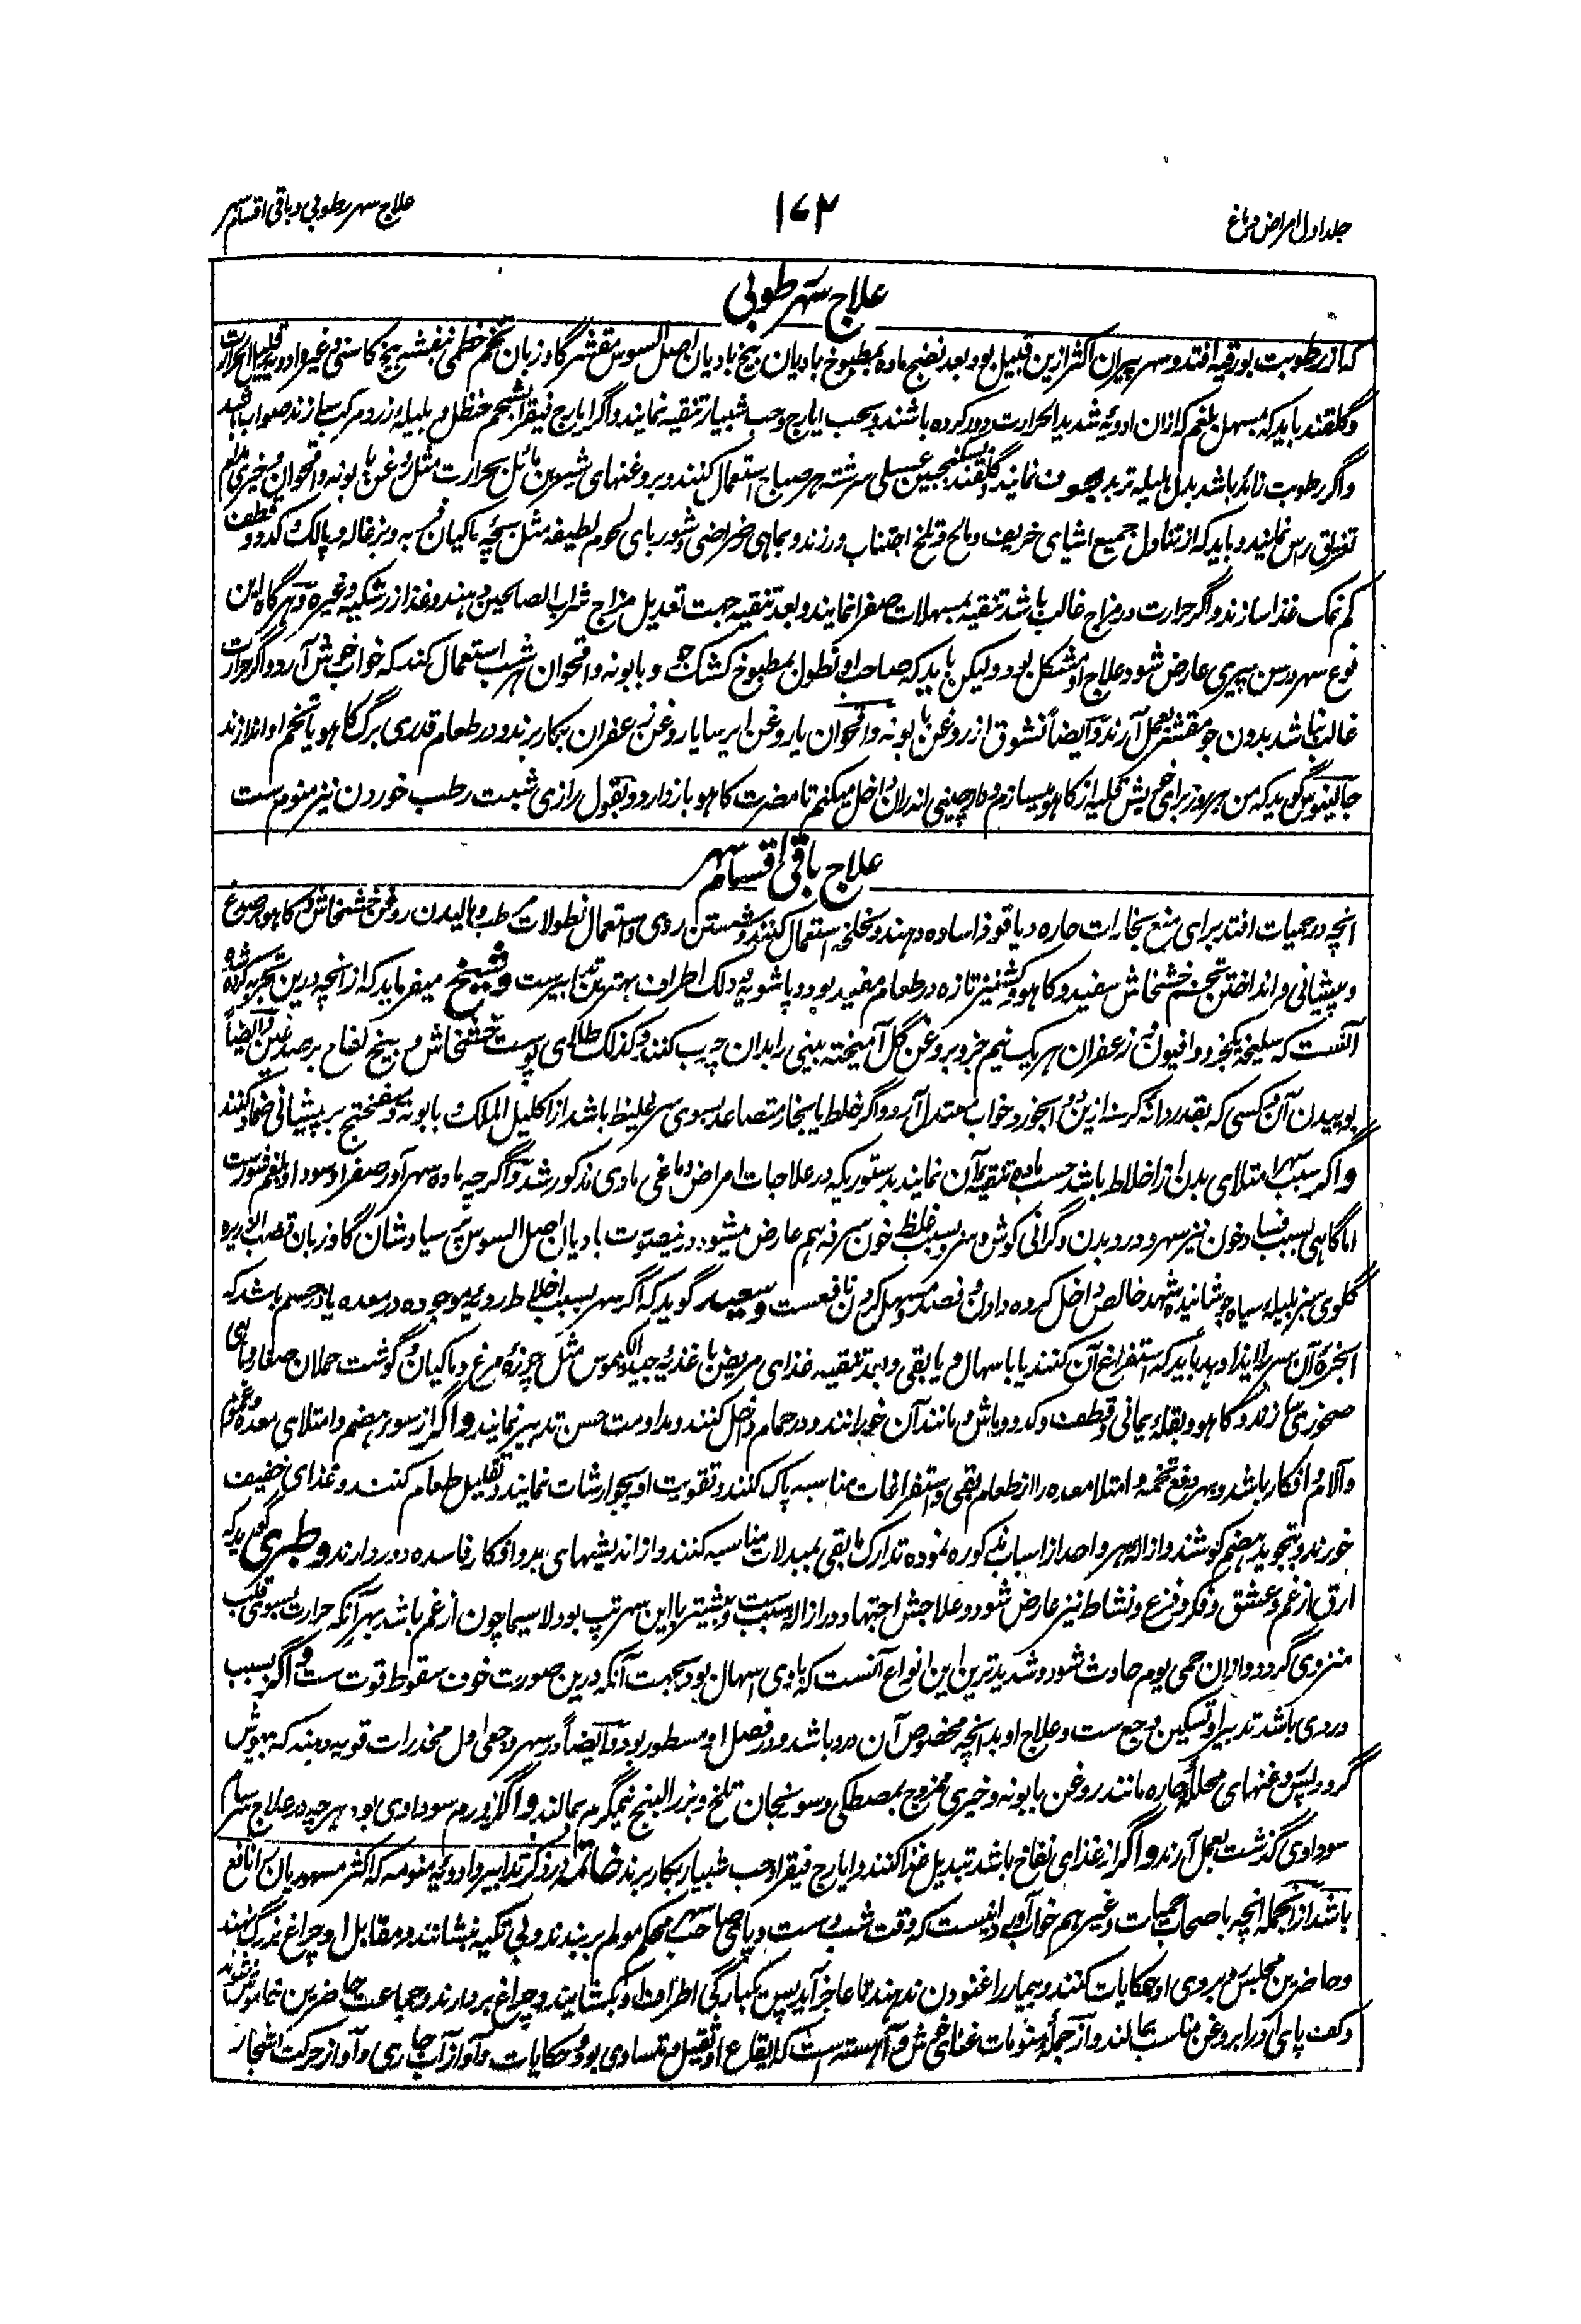 جلد اول امراض دماغ
۱۷۳
علاج سهر رطوبی و باقی اقسام سهر
علاج سهر رطوبی
که از رطوبت بورقیه افتد و سهر پیران اکثر ازین قبیل بود بعد نضج ماده بمطبوخ بادیان بیخ بادیان اصل السوس مقشر گاوزبان تخم خطمی بنفشه بیخ کاسنی وغیره ادویه قلیل الحرارت
و گلقند باید که مسهل بلغم که ازان ادویه شدید الحرارت دور کرده باشند و بحب ایارج و حب شبیار تنقیه نمایند و اگر ایارج فیقرا بشحم حنظل و بلیله زرد مرکب سازند صواب باشد
و اگر رطوبت زائد باشد بدل بلیله تربد معجون نمایند و گلقند و سکنجبین عسلی سرشته هر صباح استعمال کنند و بروغنهای شیرین مائل بحرارت مثل روغن بابونه و اقحوان و خیری مدام
تغریق راس نمایند و باید که از تناول جمیع اشیای حریف و مالح و تلخ اجتناب ورزند و بماهی رضراضی و شوربای لحوم لطیفه مثل بچه ماکیان فربه و بزغاله و پالک و کدو و قطف
کم نمک غذا سازند و اگر حرارت در مزاج غالب باشد تنقیه بمسهلات صفرا نمایند و بعد تنقیه جهت تعدیل مزاج شراب الصالحین دهند و غذا زرشکیه وغیره و هرگاه این
نوع سهر در سن پیری عارض شود علاج او مشکل بود و لیکن باید که صاحب او نطول بمطبوخ کشک جو و بابونه و اقحوان هر شب استعمال کند که خواب خوش آرد و اگر حرارت
غالب نباشد بدون جو مقشر بعمل آرند و ایضاً نشوق از روغن بابونه و اقحوان یا روغن ایرسا یا روغن زعفران بکار برند و در طعام قدری برگ کاهو یا تخم او اندازند
جالینوس گوید که من هر روز برای خویش قلیه از کاهو میسازم و دارچینی اندران داخل میکنم تا مضرت کاهو باز دارد و بقول رازی شبت رطب خوردن نیز منوم ست
علاج باقی اقسام سهر
انچه در حمیات افتد برای منع بخارات حاره دیاقوذا ساده دهند و لخلخه استعمال کنند و شستن روی و استعمال نطولات مرطب و مالیدن روغن خشخاش و کاهو بر صدغ
و پیشانی و انداختن تخم خشخاش سفید و کاهو و کشنیز تازه در طعام مفید بود و پاشویه و دلک اطراف بهترین تدابیرست و شیخ میفرماید که از انچه درین تجربه کرده شد
آنست که سلیخه یکجزو و افیون و زعفران هریک نیم جزو بروغن گل آمیخته بینی را بدان چرب کنند و کذلک طلای پوست خشخاش و بیخ لفاح بر صدغین و ایضاً
بوییدن آن و کسی که بقدر دانه کرسنه ازین دوا بخورد خواب معتدل آرد و اگر خلط یا بخار متصاعد بسوی سر غلیظ باشد از اکلیل الملک و بابونه و میفختج بر پیشانی ضماد کنند
و اگر سبب سهر امتلای بدن از اخلاط باشد حسب ماده تنقیه آن نمایند بدستوریکه در علاجات امراض دماغی مادی مذکور شد و اگرچه ماده سهر آور صفرا و سودا و بلغم شورست
اما گاهی بسبب فساد خون نیز سهر و درد بدن و گرانی گوش و سر و بسبب غلظ خون سرفه هم عارض میشود درینصورت بادیان اصل السوس پرسیاوشان گاوزبان قصب الذریره
گلوی سبز بلیله سیاه جوشانیده شهد خالص داخل کرده دادن و فصد و مسهل کردن نافعست و سعید گوید که اگر سهر بسبب اخلاط ردیه موجوده در معده یا در جسم باشد که
ابخره آن سر را ایذا دهد باید که استفراغ آن کنند یا باسهال و یا بقی و بعد تنقیه غذای مریض باغذیه جید الکیموس مثل چوزه مرغ و ماکیان و گوشت حملان صغار و ماهی
صخری سازند و کاهو و بقله یمانی و قطف و کدو و ماش و مانند آن خورانند و در حمام داخل کنند و مداومت حسن تدبیر نمایند و اگر از سوء هضم و امتلای معده و غموم
و آلام و افکار باشد و بهر دفع تخمه و امتلا معده را از طعام بقی و استفراغات مناسبه پاک کنند و تقویت او بجوارشات نمایند و تقلیل طعام کنند و غذای خفیف
خورند و بتجوید هضم کوشند و ازاله هر واحد از اسباب مذکوره نموده تدارک مابقی بمبدلات مناسبه کنند و از اندیشهای بد و افکار فاسده دور دارند و طبری گوید که
ارق از غم و عشق و فکر و فزع و نشاط نیز عارض شود و علاجش اجتهاد در ازاله سبب ست و بیشتر با این سهر تپ بود لاسیما چون از غم باشد بهر آنکه حرارت بسوی قلب
منزوی گردد و ازان حمی یوم حادث شود و شدیدترین این انواع آنست که باوی اسهال بود بجهت آنکه درین صورت خوف سقوط قوت ست و اگر بسبب
دردی باشد تدبیر او تسکین وجع ست و علاج او بدانچه مخصوص آن درد باشد و در فصل او مسطور بود و ایضاً در سهر وجعی اول مخدرات قویه دهند که بیهوش
گردد پس روغنهای محلله حاره مانند روغن بابونه و خیری ممزوج بمصطکی و سورنجان تلخ و بزرالبنج نیمگرم بمالند و اگر از ورم سوداوی بود هرچه در علاج سرسام
سوداوی گذشت بعمل آرند و اگر از غذای نفاخ باشد تبدیل غذا کنند و ایارج فیقرا و حب شبیار بکار برند خاتمه در ذکر تدابیر و ادویه منومه که اکثر مسهورین را نافع
باشد ازانجمله انچه باصحاب حمیات وغیرهم خواب آورد اینست که وقت شب دست و پای صاحب سهر محکم مولم بربندند و بی تکیه بنشانند و مقابل او چراغ بزرگ نهند
و حاضرین مجلس روبروی او حکایات کنند و بیمار را غنودن ندهند تا عاجز آید پس یکبارگی اطراف او بکشایند و چراغ بردارند و جماعت حاضرین خاموش شوند
و کف پای او را بروغن مناسب بمالند و از جمله منومات غنای خوش و آهسته است که ایقاع او ثقیل و متساوی بود و حکایات و آواز آب جاری و آواز حرکت اشجار